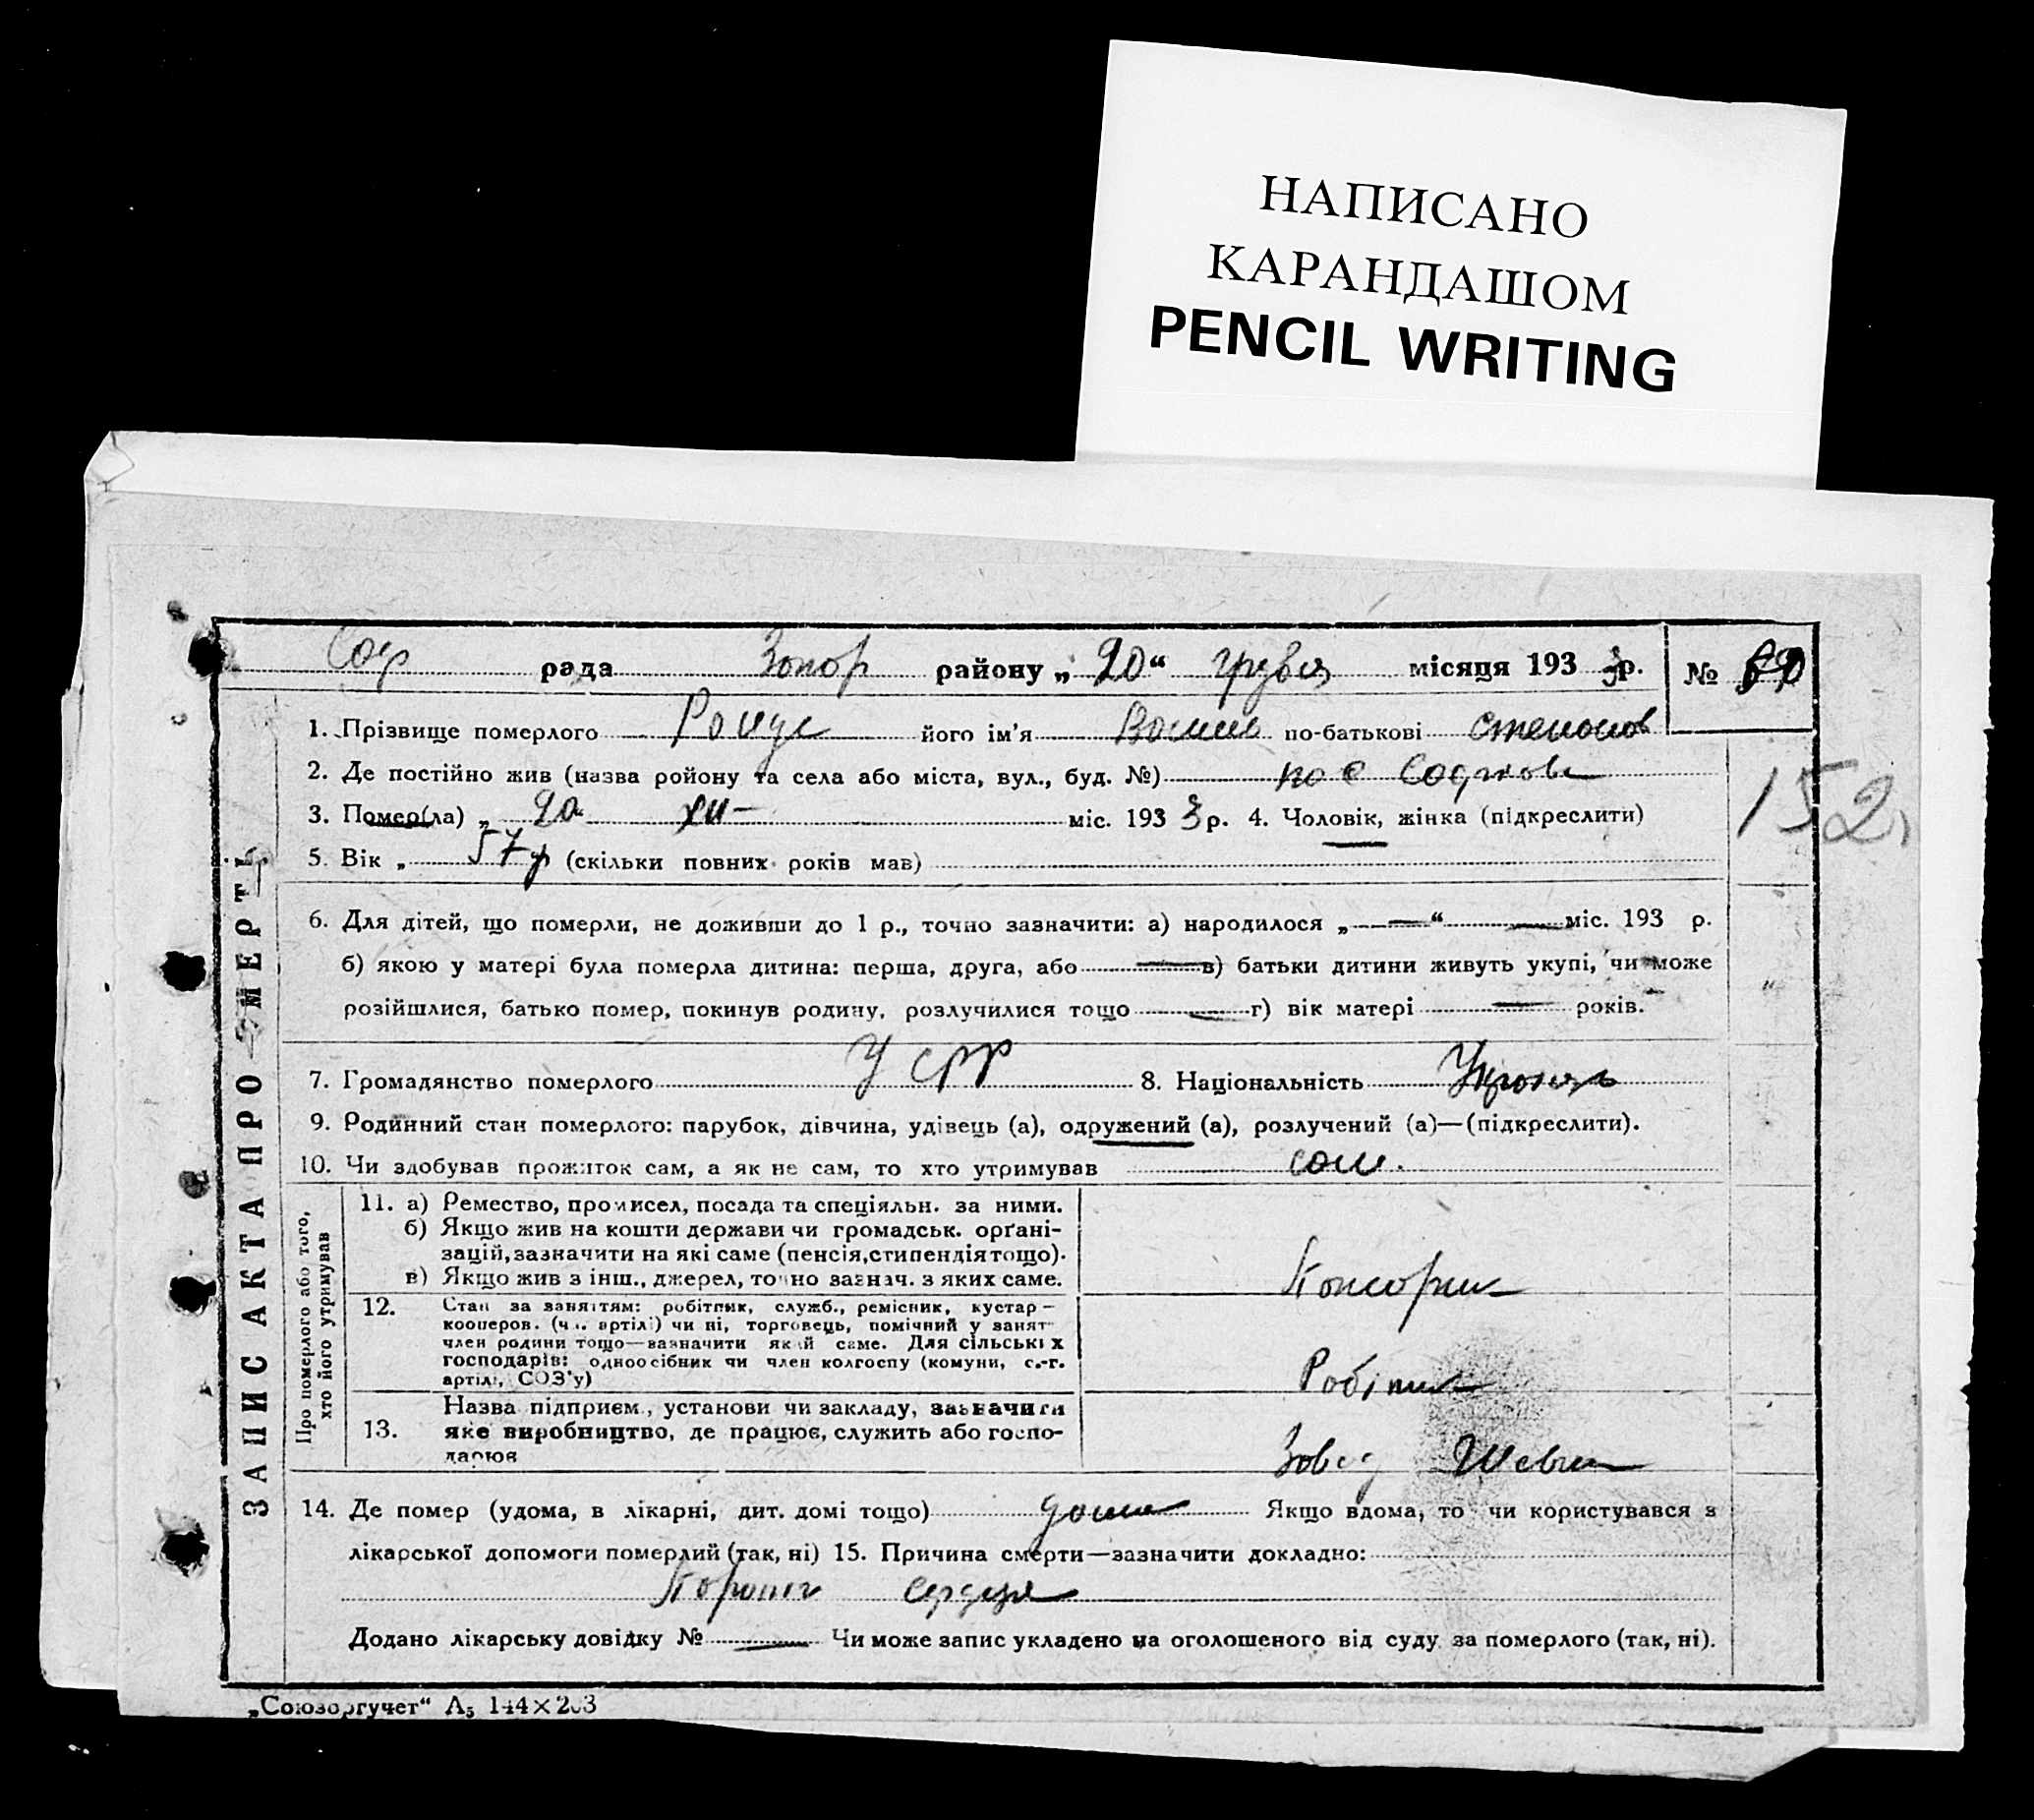 НАПИСАНО
КАРАНДАШОМ
PENCIL WRITING
рада Запор району „20“ грудня місяця 1933 р. №
1. Прізвище померлого його ім'я Василь по-батькові Степанов
2. Де постійно жив (назва ройону та села або міста, вул., буд. №) пос
3. Помер(ла) „ 20 XII – міс. 1933 р. 4. Чоловік, жінка (підкреслити)
152
5. Вік „ 57 р (скільки повних років мав)
6. Для дітей, що померли, не доживши до 1 р., точно зазначити: а) народилося „ — “ — міс. 193 р.
б) якою у матері була померла дитина: перша, друга, або — в) батьки дитини живуть укупі, чи може
розійшлися, батько помер, покинув родину, розлучилися тощо — г) вік матері — років.
7. Громадянство померлого УСРР 8. Національність Українець
9. Родинний стан померлого: парубок, дівчина, удівець (а), одружений (а), розлучений (а)—(підкреслити).
10. Чи здобував прожиток сам, а як не сам, то хто утримував сам.
ЗАПИС АКТА ПРО СМЕРТЬ
Про померлого або того, хто його утримував
11. а) Ремество, промисел, посада та спеціяльн. за ними.
б) Якщо жив на кошти держави чи громадськ. орґані-
зацій, зазначити на які саме (пенсія, стипендія тощо).
в) Якщо жив з інш., джерел, точно зазнач. з яких саме.
12. Стан за заняттям: робітник, служб., ремісник, кустар —
кооперов. (чл. артілі) чи ні, торговець, помічний у занят
член родини тощо—зазначити який саме. Для сільських
господарів: одноосібник чи член колгоспу (комуни, с.-г.
артілі, СОЗ'у)
Робітник
13. Назва підприєм., установи чи закладу, зазначити
яке виробництво, де працює, служить або госпо-
дарює
Завод Шевчен
14. Де помер (удома, в лікарні, дит. домі тощо) дома Якщо вдома, то чи користувався з
лікарської допомоги померлий (так, ні) 15. Причина смерти—зазначити докладно:
серця
Додано лікарську довідку № — Чи може запис укладено на оголошеного від суду за померлого (так, ні).
„Союзоргучет“ А₅ 144×203